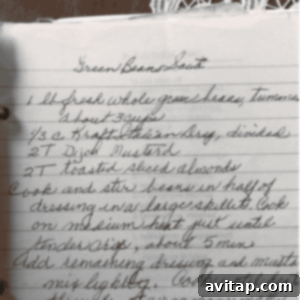 Green Beans Saut
1 lb fresh whole green beans, trimmed
about 3 cups
1/3 c Kraft Italian Dressg, divided
2T Dijon Mustard
2T toasted sliced almonds
Cook and stir beans in half of
dressing in a large skillet Cook
on medium heat just until
tender crisp, about 5 min
Add remaining dressing and
mix lightly. Cook
avitap.com